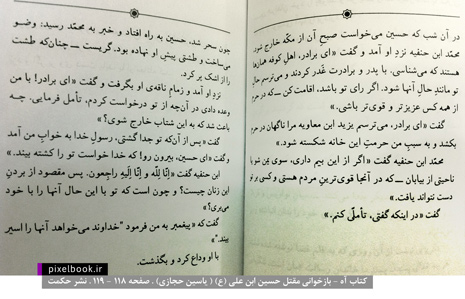 در آن شب که حسین می‌خواست صبحِ آن از مکّه خارج شود،
محمّد ابن حنفیه نزدِ او آمد و گفت «ای برادر، اهلِ کوفه همان‌ها
هستند که می‌شناسی. با پدر و برادرت غَدر کردند و می‌ترسم حالِ
تو مانندِ حالِ آنها شود. اگر رای تو باشد، اقامت کن ــ که در حرم
از همه کس عزیزتر و قوی‌تر باشی.»
گفت «ای برادر، می‌ترسم یزید ابن معاویه مرا ناگهان در حرم
بکشد و به سببِ من حرمتِ این خانه شکسته شود.»
محمّد ابن حنفیه گفت «اگر از این بیم داری، سوی یَمَن شو یا
ناحیتی از بیابان ــ که در آنجا قوی‌ترینِ مردم هستی و کسی بر تو
دست نتواند یافت.»
گفت «در اینکه گفتی، تأملّی کنم.»
چون سحر شد، حسین به راه افتاد و خبر به محمّد رسید: وضو
می‌ساخت و طشتی پیشِ او نهاده بود. گریست ــ چنان‌که طشت
را از اشک پر کرد.
نزدِ او آمد و زمامِ ناقه‌ی او بگرفت و گفت «ای برادر! با من
وعده دادی در آن‌چه از تو درخواست کردم، تأمل فرمایی. چه
باعث شد که به این شتاب خارج شوی؟»
گفت «پس از آن‌که تو جدا گشتی، رسولِ خدا به خوابِ من آمد
و گفت «ای حسین، بیرون رو! که خدا خواست تو را کشته بیند.»
ابن حنفیه گفت «اِنّا لِلّه و اِنّا اِلَیهِ راجِعون. پس مقصود از بردنِ
این زنان چیست؟ و چون است که تو با این حال آنها را با خود
می‌بری؟»
گفت که «پیغمبر به من فرمود "خداوند می‌خواهد آنها را اسیر
بیند."»
با او وداع کرد و بگذشت.
pixelbook.ir
کتاب آه - بازخوانی مقتل حسین ابن علی (ع) ( یاسین حجازی) . صفحه ۱۱۸ - ۱۱۹ . نشر حکمت